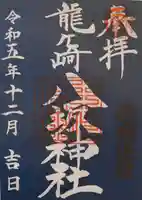 奉拝
龍ヶ崎
八坂神社
令和五年十二月吉日